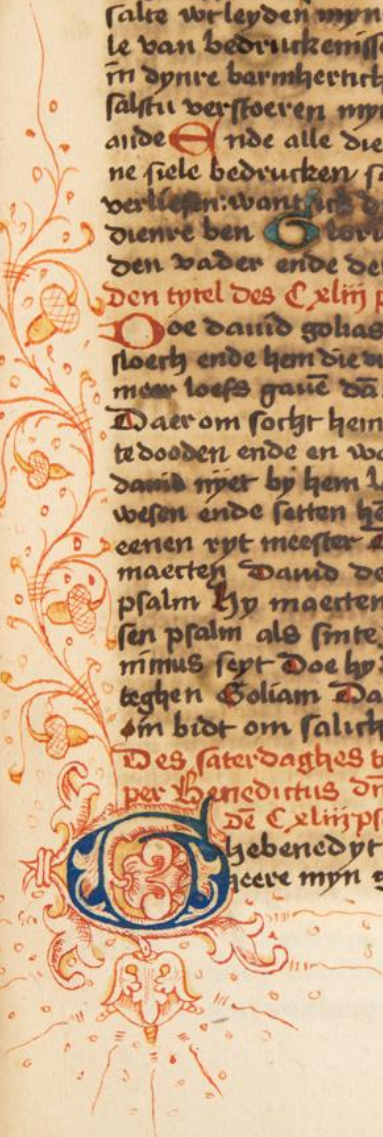 salte wtleyden myn
le van bedruckeniss
in dynre barmherticH
salstu verstoeren myn
ande Ende alle die
ne siele bedrucken s
verliesen: want ick d
dienre ben Glori
den vader ende de
Den tytel des Cxliij p
Doe dauid golias
sloech ende hem die
meer loefs gauē dā
Daer om socht hem
te dooden ende en wo
dauid nyet by hem l
wesen ende setten hē
eenen ryt meester
maecten Dauid de
psalm Hy maecten
sen psalm als sinte
nimus seyt Doe hy
teghen Goliam Da
om bidt om salich
Des saterdaghes t
per Benedictus dn̄
Dē Cxliij ps
Ghebenedyt
heere myn g